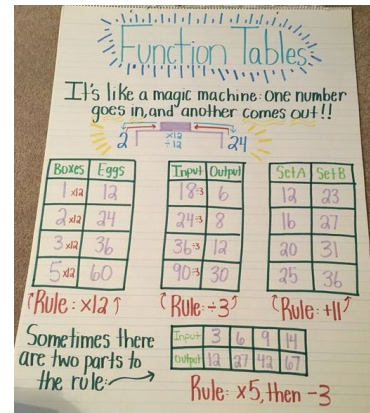 Function Tables
It's like a magic machine: One number
goes in, and another comes out!!
2 x12 ÷12 24
Boxes Eggs
1 x12 12
2 x12 24
3 x12 36
5 x12 60
Rule: x12
Input Output
18÷3 6
24÷3 8
36÷3 12
90÷3 30
Rule: ÷3
Set A Set B
12 23
16 27
20 31
25 36
Rule: +11
Sometimes there
are two parts to
the rule:
Input 3 6 9 14
Output 12 27 42 67
Rule: x5, then -3